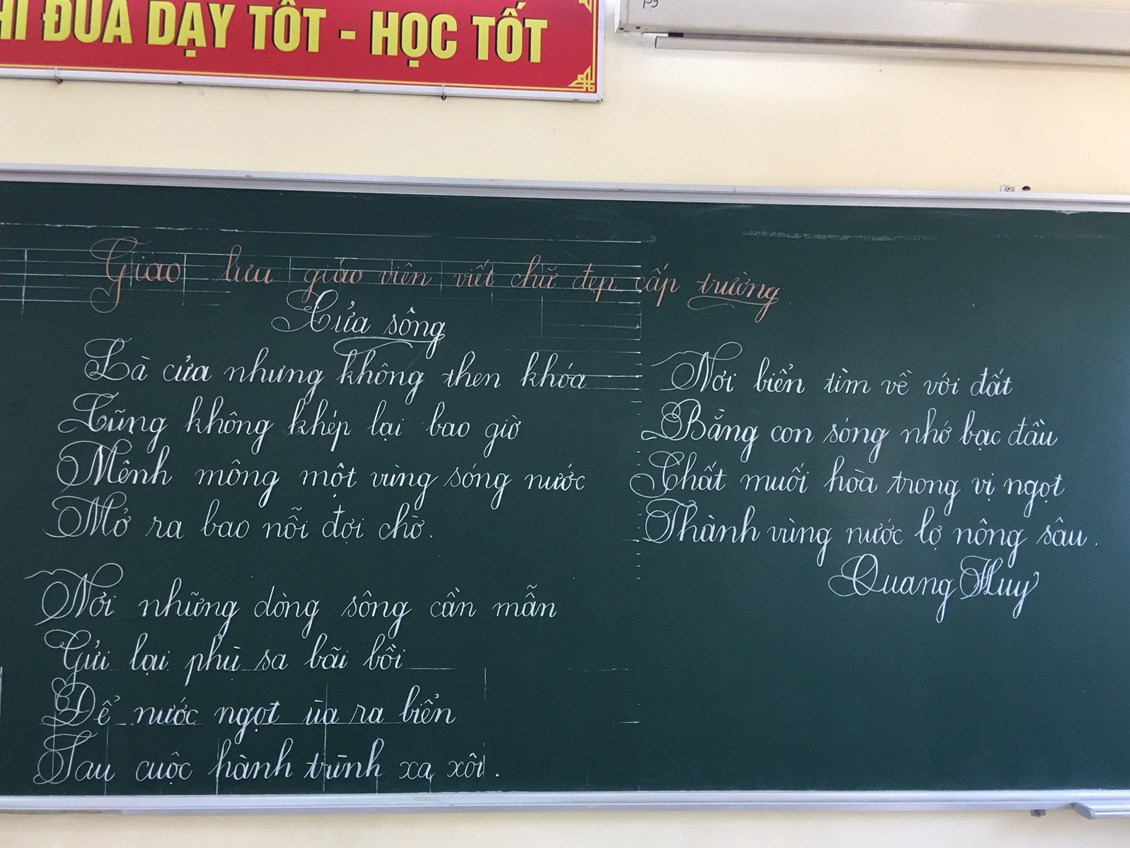 HI ĐUA DẠY TỐT - HỌC TỐT
Giao lưu giáo viên viết chữ đẹp cấp trường
Cửa sông
Là cửa nhưng không then khóa
Cũng không khép lại bao giờ
Mênh mông một vùng sóng nước
Mở ra bao nỗi đợi chờ.
Nơi những dòng sông cần mẫn
Gửi lại phù sa bãi bồi
Để nước ngọt ùa ra biển
Sau cuộc hành trình xa xôi.
Nơi biển tìm về với đất
Bằng con sóng nhớ bạc đầu
Chất muối hòa trong vị ngọt
Thành vùng nước lợ nông sâu.
Quang Huy